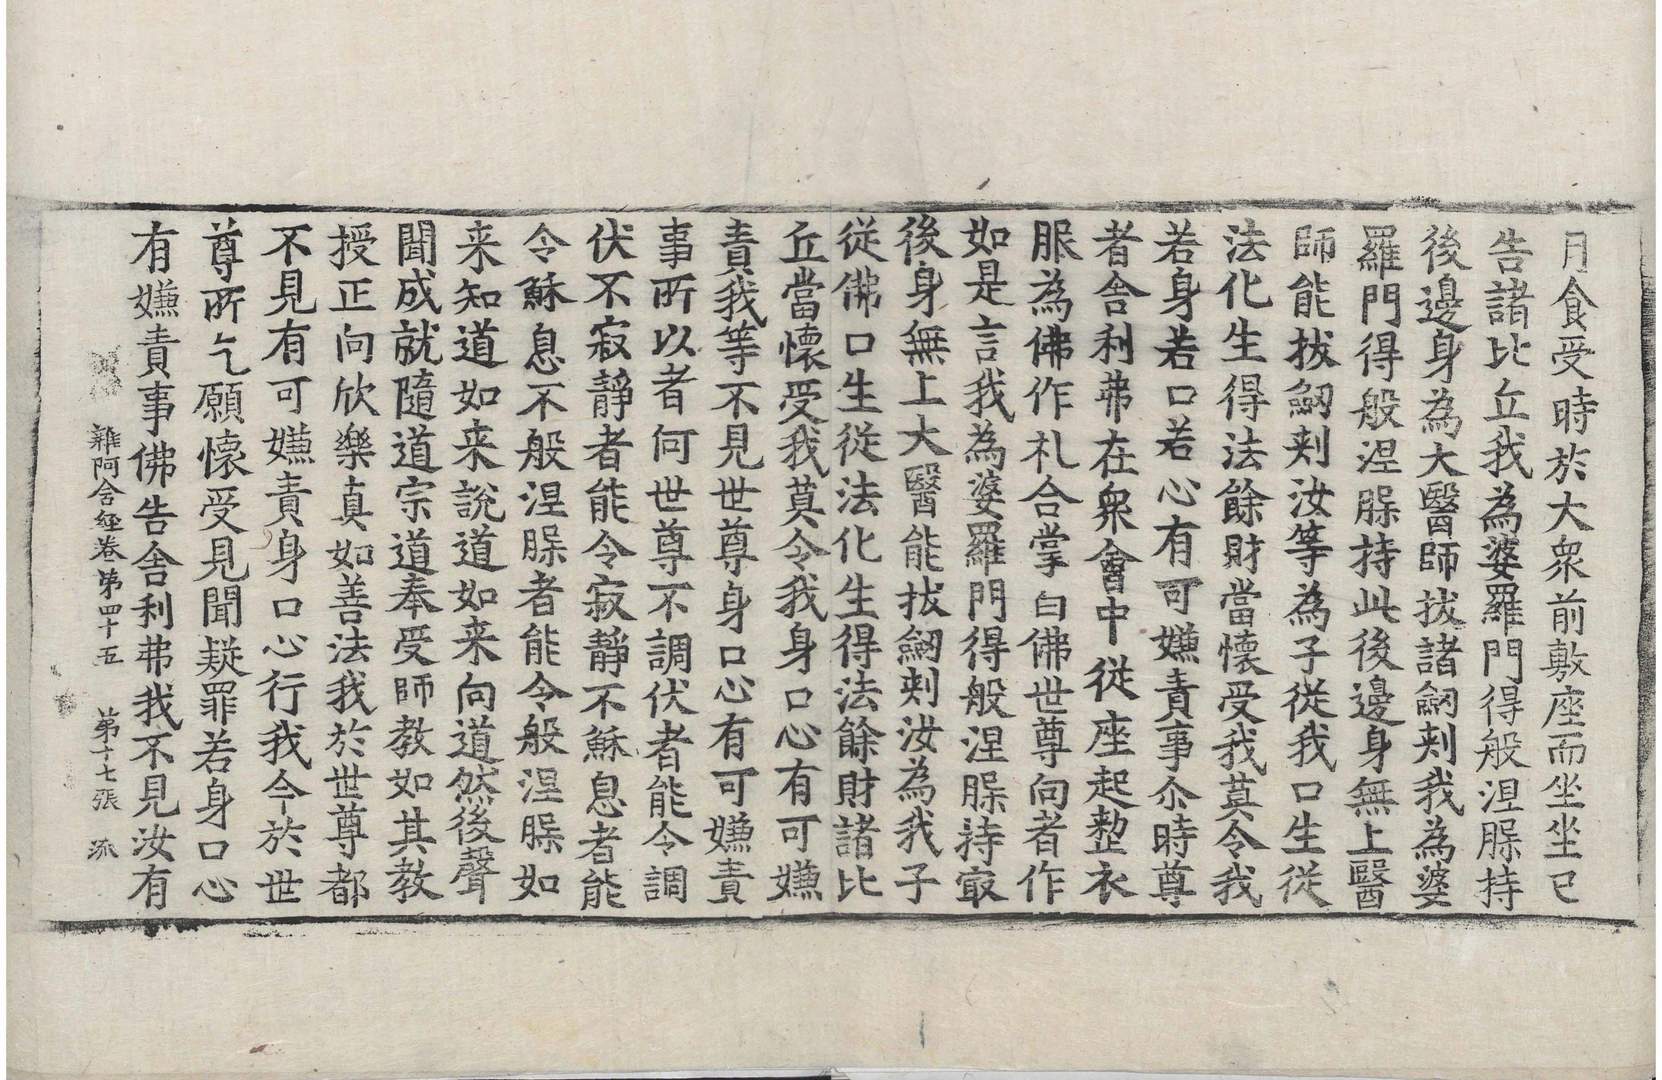 月食受時於大衆前敷座而坐坐已
告諸比丘我為婆羅門得般涅槃持
後邊身為大醫師拔諸劒刾我為婆
羅門得般涅槃持此後邊身無上醫
師能拔劒刾汝等為子從我口生從
法化生得法餘財當懷受我莫令我
若身若口若心有可嫌責事尒時尊
者舍利弗在衆會中從座起整衣
服為佛作礼合掌白佛世尊向者作
如是言我為婆羅門得般涅槃持㝡
後身無上大醫能拔劒刾汝為我子
從佛口生從法化生得法餘財諸比
丘當懷受我莫令我身口心有可嫌
責我等不見世尊身口心有可嫌責
事所以者何世尊不調伏者能令調
伏不寂靜者能令寂靜不穌息者能
令穌息不般涅槃者能令般涅槃如
来知道如来說道如来向道然後聲
聞成就隨道宗道奉受師教如其教
授正向欣樂真如善法我於世尊都
不見有可嫌責身口心行我今於世
尊所乞願懷受見聞疑罪若身口心
有嫌責事佛告舍利弗我不見汝有
雜阿含經卷第四十五 第十七張 流